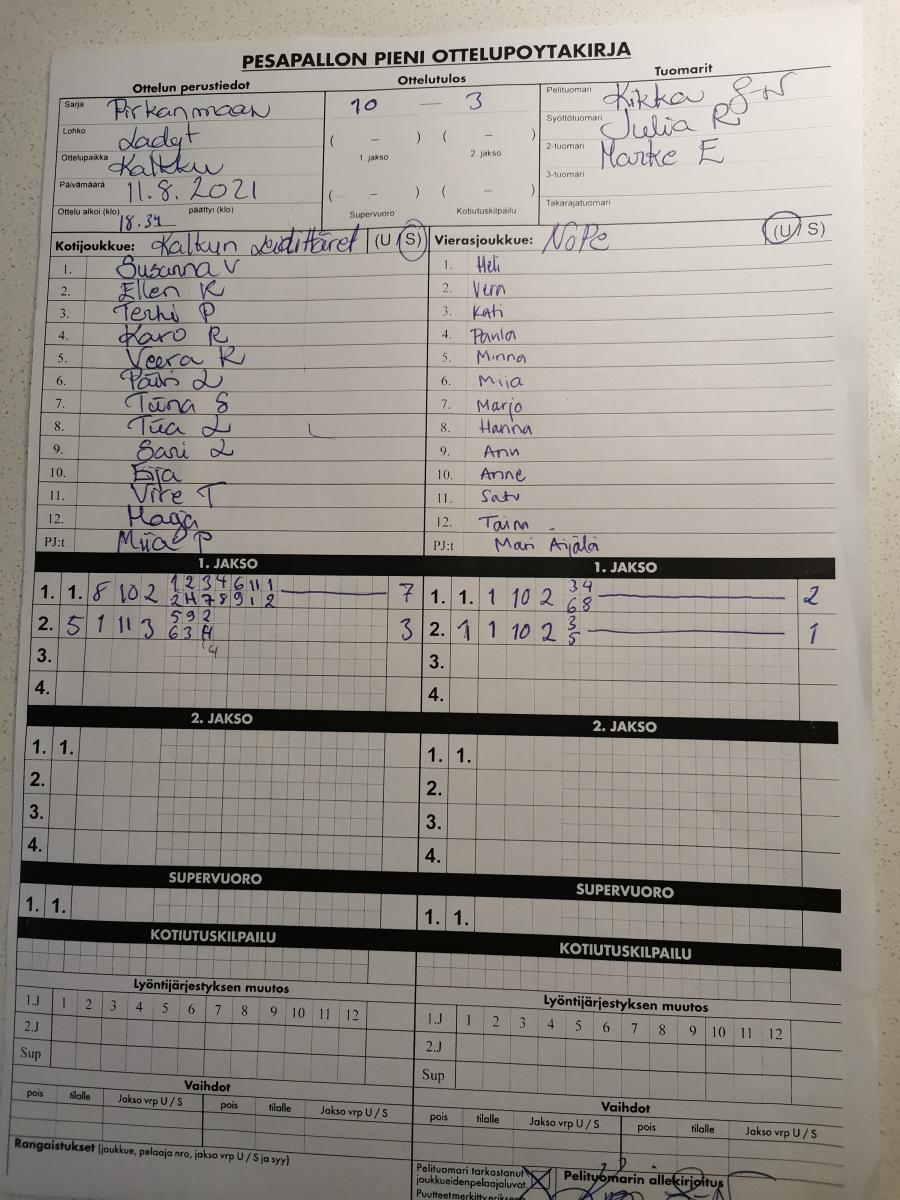 PESAPALLON PIENI OTTELUPOYTAKIRJA
Ottelun perustiedot
Sarja Pirkanmaan
Lohko Ladyt
Ottelupaikka Kalkku
Päivämäärä 11.8.2021
Ottelu alkoi (klo) 18.34 päättyi (klo)
Ottelutulos
10 — 3
( – ) ( – )
1. jakso 2. jakso
( – ) ( – )
Supervuoro Kotiutuskilpailu
Tuomarit
Pelituomari Kikka
Syöttötuomari Julia R
2-tuomari Marke E
3-tuomari
Takarajatuomari
Kotijoukkue: Kalkun Leidittäret (U/S)
1. Susanna V
2. Ellen R
3. Terhi P
4. Karo R
5. Veera R
6. Päivi L
7. Tiina S
8. Tiia L
9. Sari L
10. Eija
11. Virve T
12. Maga
PJ:t Miia P
Vierasjoukkue: NoPe (U/S)
1. Heli
2. Vera
3. Kati
4. Paula
5. Minna
6. Miia
7. Marjo
8. Hanna
9. Anu
10. Anne
11. Satu
12. Taina
PJ:t Mari Äijälä
1. JAKSO
1. 1. 8 10 2 1 2 3 4 6 11 1 7
2 4 7 8 9 1 2
2. 5 1 11 3 5 9 2 3
6 3 4
4
3.
4.
1. JAKSO
1. 1. 1 10 2 3 4 2
6 8
2. 1 1 10 2 3 1
5
3.
4.
2. JAKSO
1. 1.
2.
3.
4.
2. JAKSO
1. 1.
2.
3.
4.
SUPERVUORO
1. 1.
SUPERVUORO
1. 1.
KOTIUTUSKILPAILU
KOTIUTUSKILPAILU
Lyöntijärjestyksen muutos
1.J 1 2 3 4 5 6 7 8 9 10 11 12
2.J
Sup
Lyöntijärjestyksen muutos
1.J 1 2 3 4 5 6 7 8 9 10 11 12
2.J
Sup
Vaihdot
pois tilalle Jakso vrp U / S pois tilalle Jakso vrp U / S
Vaihdot
pois tilalle Jakso vrp U / S pois tilalle Jakso vrp U / S
Rangaistukset (joukkue, pelaaja nro, jakso vrp U / S ja syy)
Pelituomari tarkastanut
joukkueidenpelaajaluvat
Pelituomarin allekirjoitus